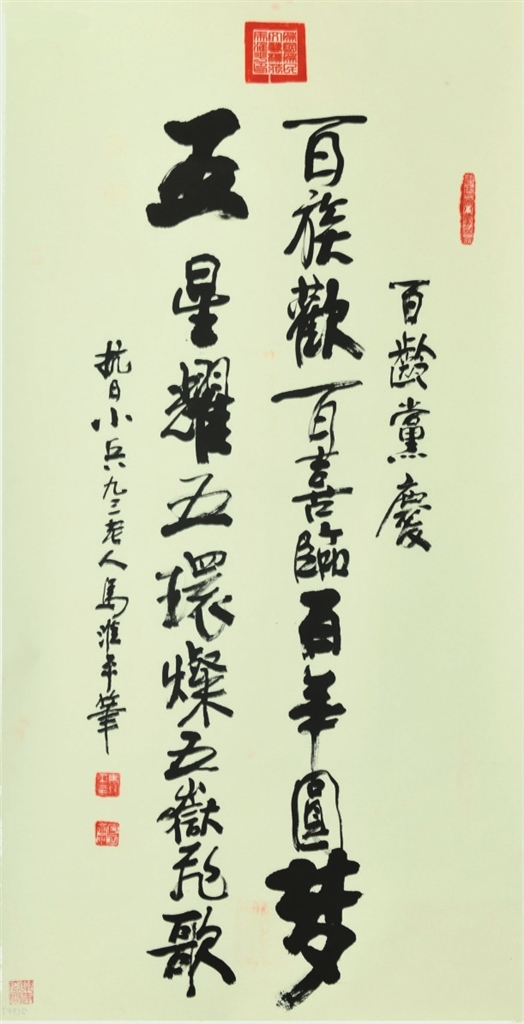 百齡黨慶
百族歡百喜臨百年圓梦
五星耀五環燦五嶽飛歌
抗日小兵九三老人馬淮平筆